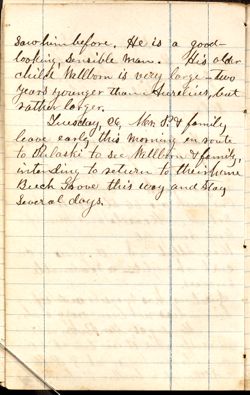 saw him before. He is a good-
looking, sensible man. His older
child Wellborn is very large - two
years younger than Aurelius, but
rather larger.
Tuesday, 26, Mr. & family
leave early this morning en route
to Pulaski to see Wellborn & family,
intending to return to their home
Beech Grove this way and stay
several days.